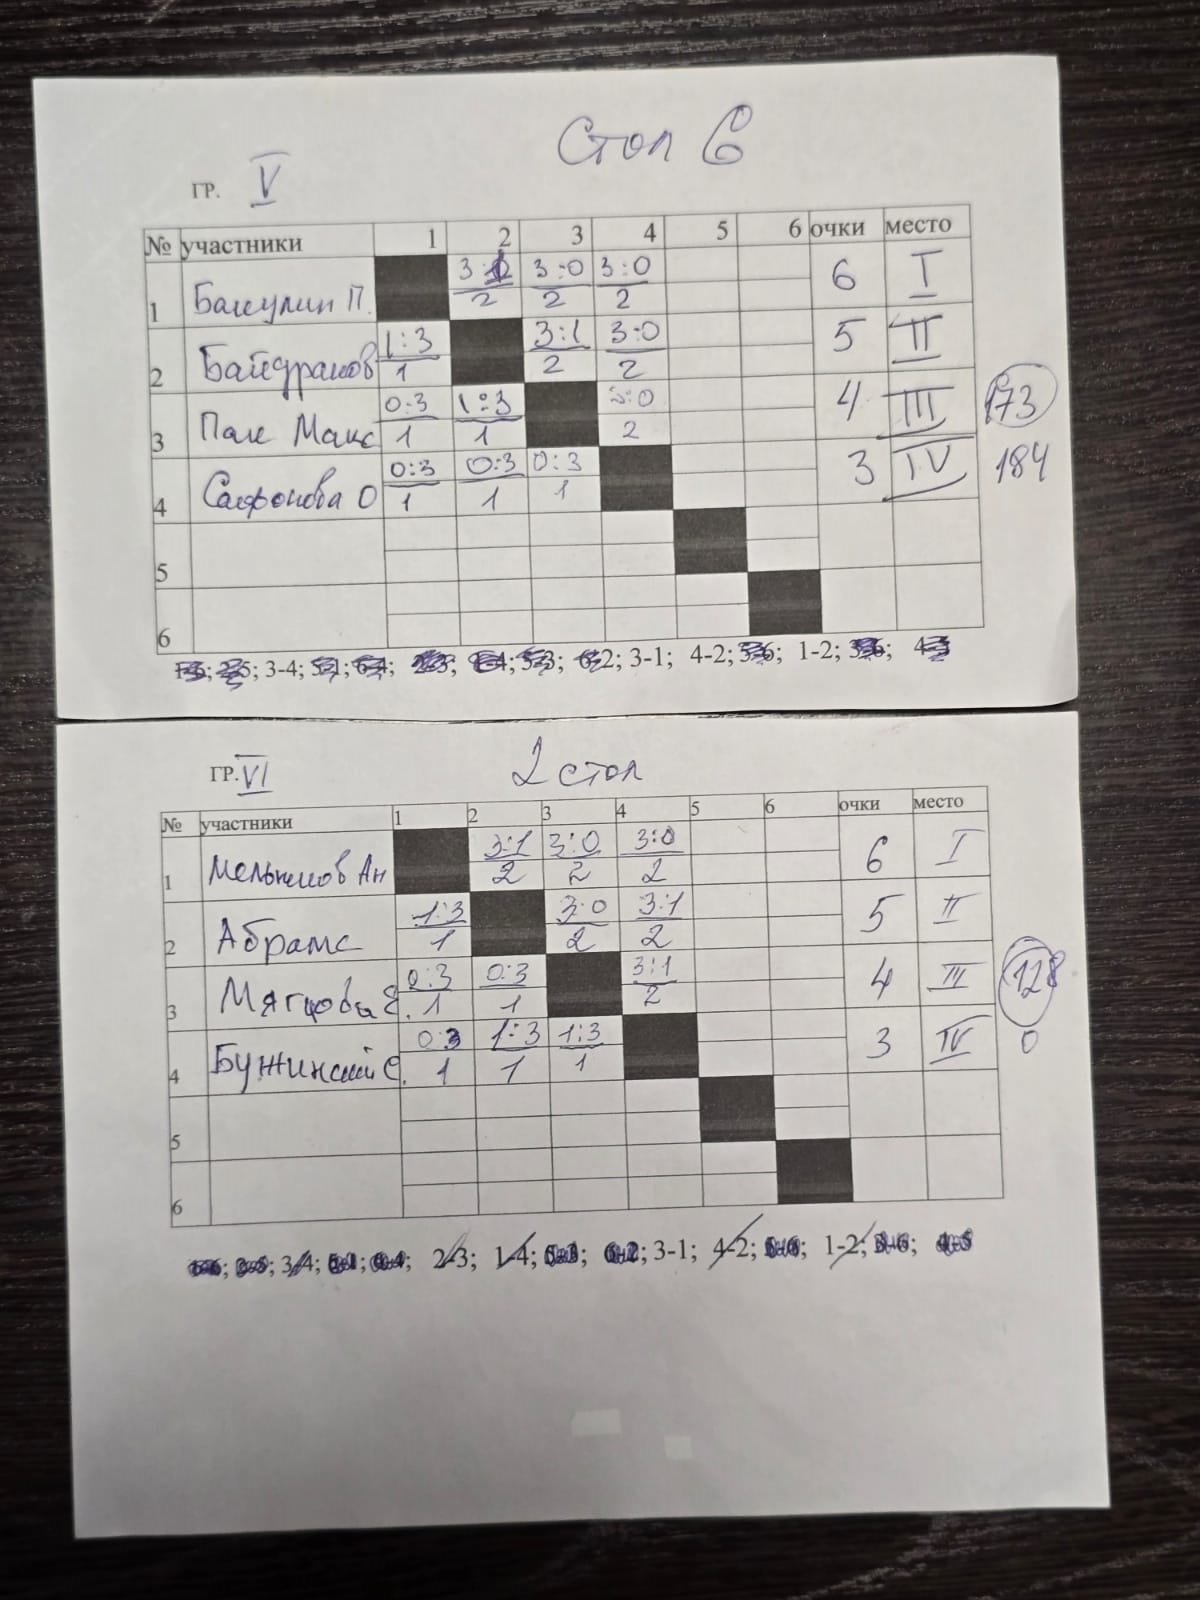 Стол 6
ГР. V
№ участники 1 2 3 4 5 6 очки место
1 Бакулин П. 3:1 3:0 3:0 6 I
2 2 2
2 1:3 3:1 3:0 5 II
1 2 2
3 Пак Макс 0:3 1:3 3:0 4 III 173
1 1 2
4 Сафонова О 0:3 0:3 0:3 3 IV 184
1 1 1
5
6
3-4; 3-1; 4-2; 1-2;
ГР. VI 2 стол
№ участники 1 2 3 4 5 6 очки место
1 Мельников Ан 3:1 3:0 3:0 6 I
2 2 2
2 Абрамс 1:3 3:0 3:1 5 II
1 2 2
3 0:3 0:3 3:1 4 III 128
1 1 2
4 Бужинский С. 0:3 1:3 1:3 3 IV 0
1 1 1
5
6
3-4; 2-3; 1-4; 3-1; 4-2; 1-2;